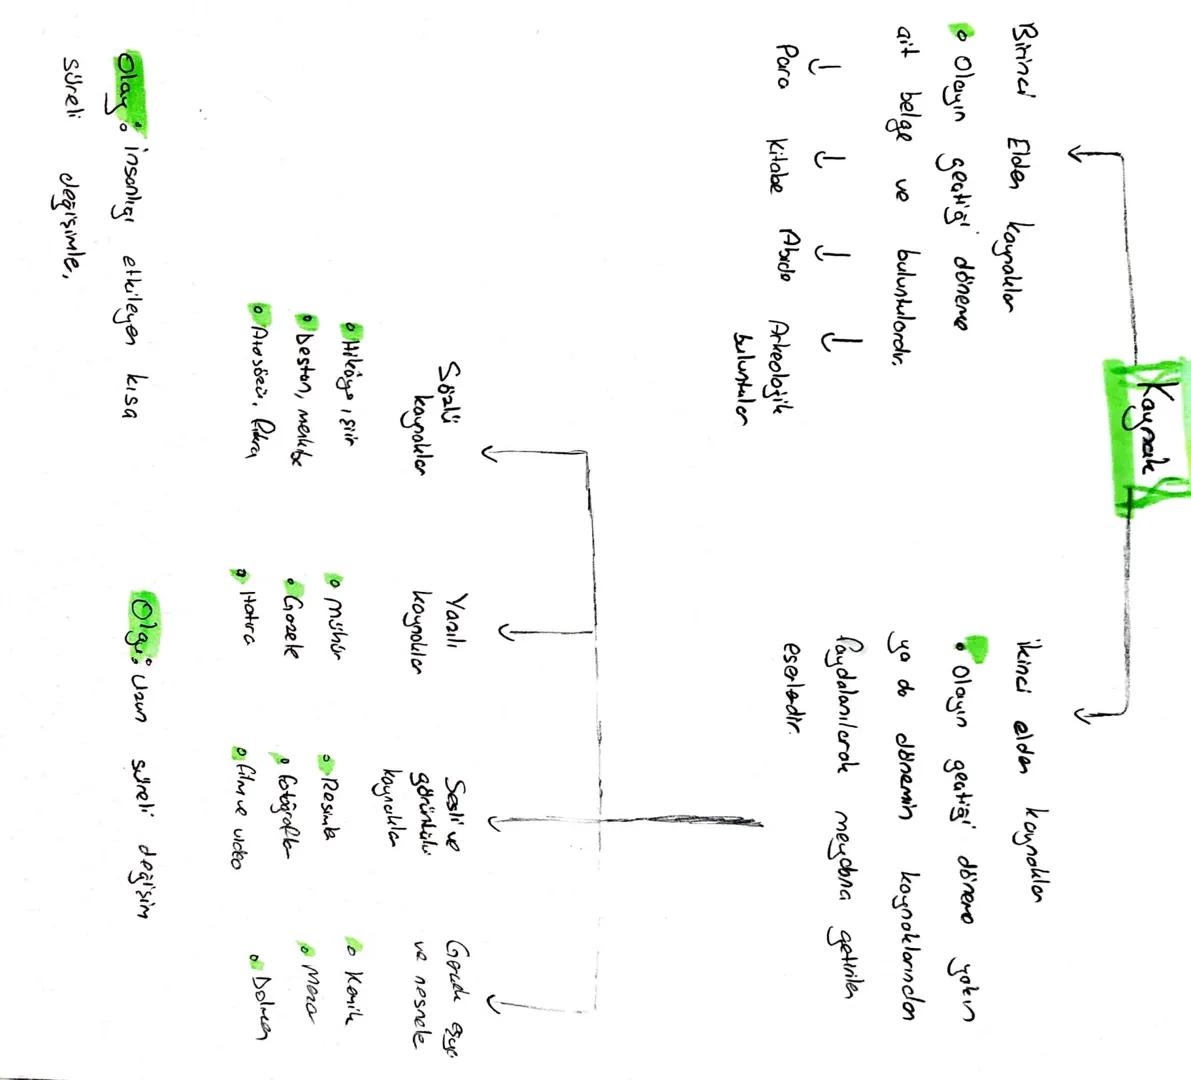 Kaynak
Birinci Elden kaynaklar
Olayın geçtiği döneme
ait belge ve buluntulardır.
Para
Kitabe
Abide
Arkeolojik
buluntular
İkinci elden kaynaklar
Olayın geçtiği döneme yakın
ya da dönemin kaynaklarından
faydalanılarak meydana getirilen
eserlerdir.
Sözlü
kaynaklar
Hikâye, şiir
Destan, menkıbe
Atasözü, fıkra
Yazılı
kaynaklar
Mühür
Gazete
Hatıra
Sesli ve
görüntülü
kaynaklar
Resimle
fotoğraflar
film ve video
Gerçek eşya
ve nesnele
Kemik
Mezar
Dolmen
Olay: insanlığı etkileyen kısa
süreli değişimle,
Olgu: Uzun süreli değişim